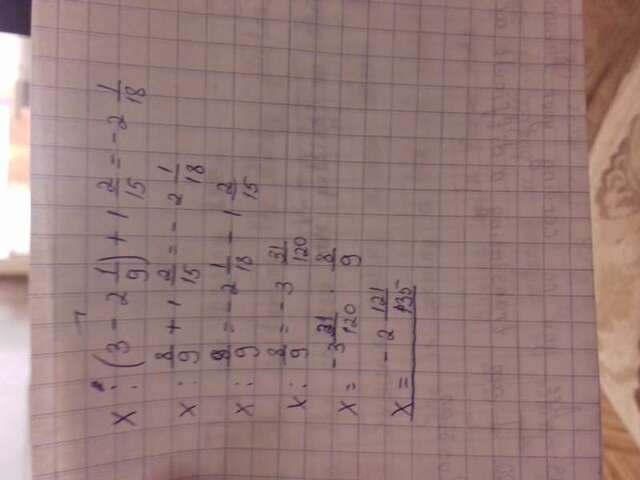 x : (3 - 2 1/9) + 1 2/15 = - 2 1/18
x : 8/9 + 1 2/15 = - 2 1/18
x : 8/9 = - 2 1/18 - 1 2/15
x : 8/9 = - 3 31/120
x = - 3 31/120 · 8/9
x = - 2 121/135